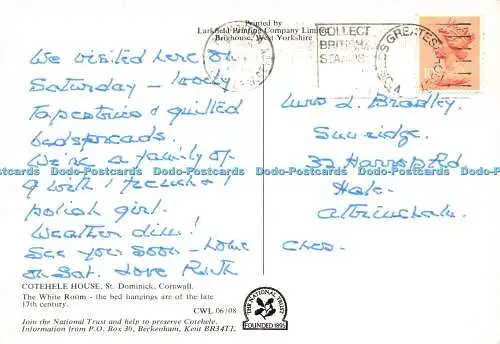 Printed by
Larkfield Printing Company Limited
Brighouse, West Yorkshire
COLLECT
BRITISH
STAMPS
We visited here on
Saturday - lovely
Tapestries & quilted
bedspreads.
We're a family of
9 with 1 French & 1
polish girl.
Weather dim!
See you soon - home
on Sat. Love Ruth
Mrs L. Bradley,
Sunridge,
32 Harrop Rd
Hale,
Altrincham,
Ches.
Dodo-Postcards Dodo-Postcards Dodo-Postcards Dodo-Postcards Dodo-Postcards Dodo-Postcards
COTEHELE HOUSE, St. Dominick, Cornwall.
The White Room - the bed hangings are of the late
17th century.
CWL 06/08
Join the National Trust and help to preserve Cotehele.
Information from P.O. Box 30, Beckenham, Kent BR34TL
THE NATIONAL TRUST
FOUNDED 1895